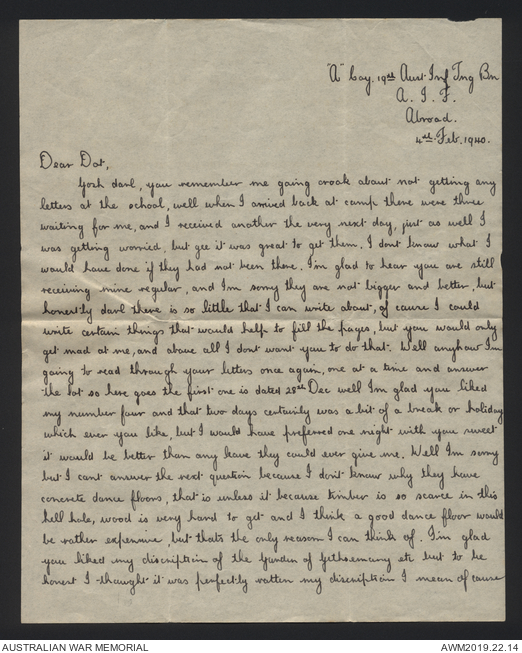 "A" Coy. 19th Aust Inf Tng Bn
A. I. F.
Abroad.
4th Feb. 1940.
Dear Dot,
Gosh darl, you remember me going crook about not getting any
letters at the school, well when I arrived back at camp there were three
waiting for me, and I received another the very next day, just as well I
was getting worried, but gee it was great to get them. I dont know what I
would have done if they had not been there. I'm glad to hear you are still
receiving mine regular, and I'm sorry they are not bigger and better, but
honestly darl there is so little that I can write about, of cause I could
write certain things that would help to fill the pages, but you would only
get mad at me, and above all I dont want you to do that. Well anyhow I'm
going to read through your letters once again, one at a time and answer
the lot so here goes the first one is dated 28th Dec well I'm glad you liked
my number four and that two days certainly was a bit of a break or holiday
which ever you like, but I would have preferred one night with you sweet
it would be better than any leave they could ever give me. Well I'm sorry
but I cant answer the next question because I don't know why they have
concrete dance floors, that is unless it because timber is so scarce in this
hell hole, wood is very hard to get and I think a good dance floor would
be rather expensive but thats the only reason I can think of. I'm glad
you liked my discription of the Garden of Gethsemany etc but to be
honest I thought it was perfectly rotten my discription I mean of cause
AUSTRALIAN WAR MEMORIAL
AWM2019.22.14